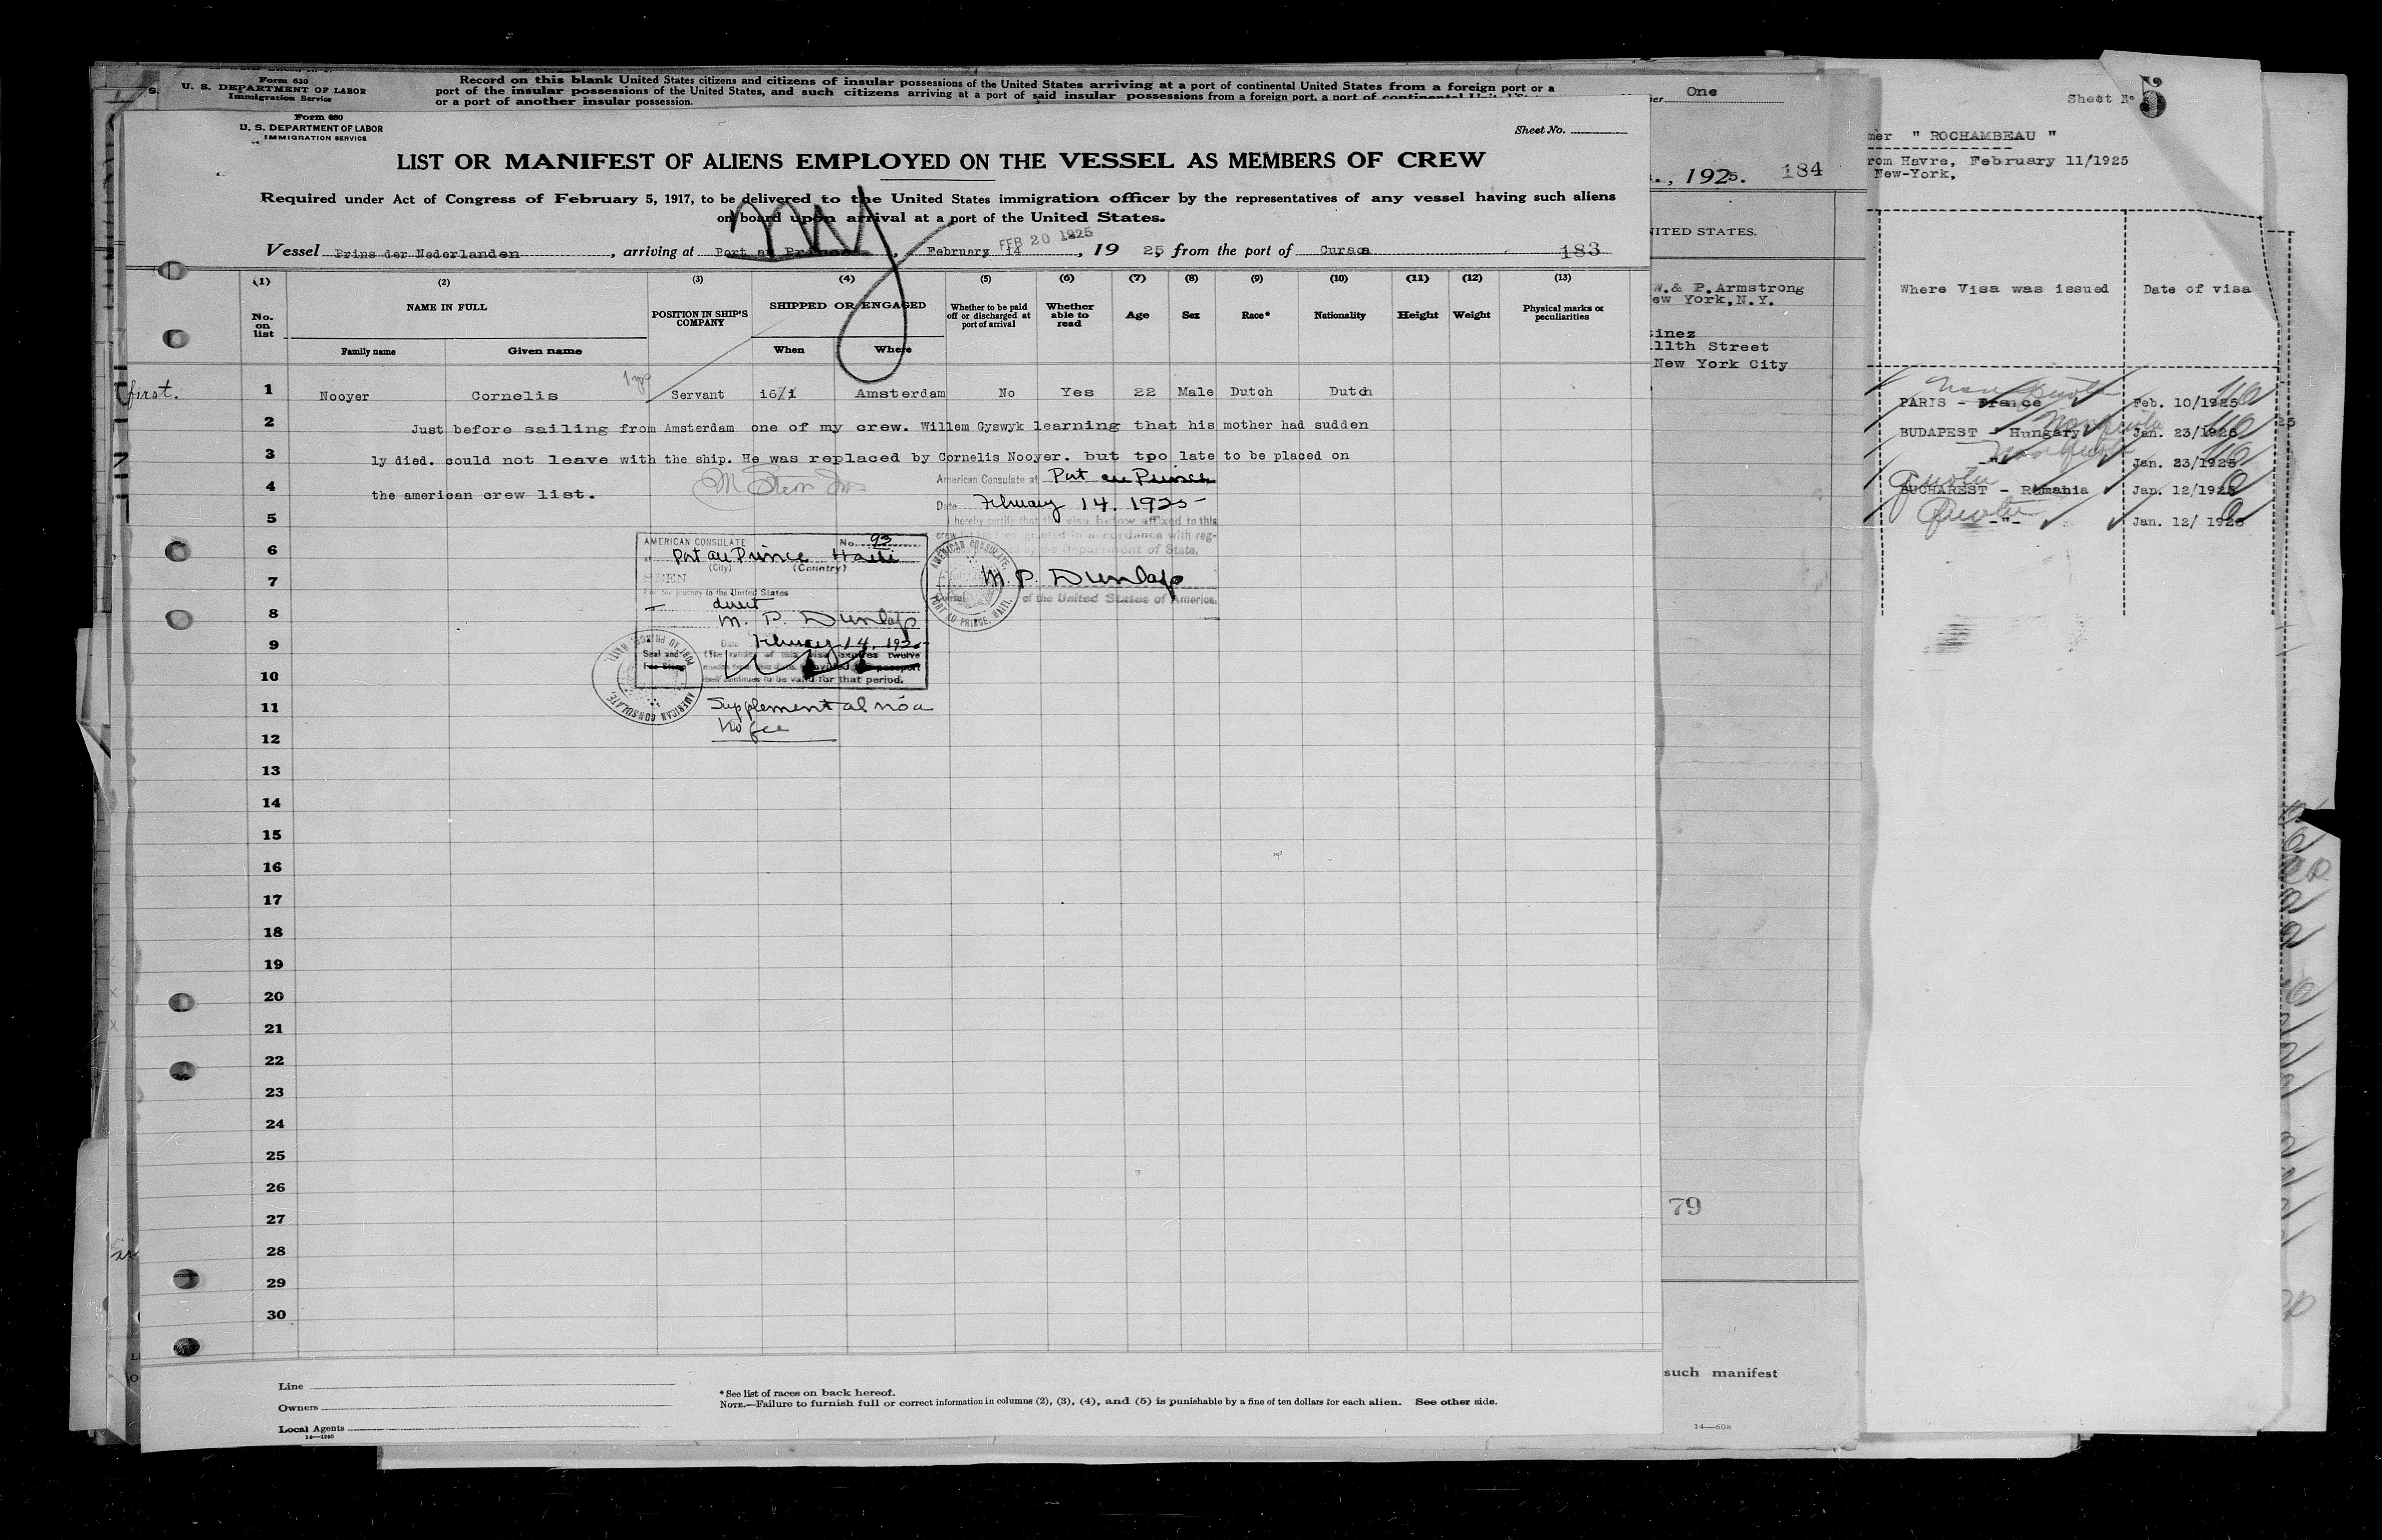 Form 630
U. S. DEPARTMENT OF LABOR
Immigration Service
Record on this blank United States citizens and citizens of insular possessions of the United States arriving at a port of continental United States from a foreign port or a
port of the insular possessions of the United States, and such citizens arriving at a port of said insular possessions from a foreign port, a port of continental
or a port of another insular possession.
Form 680
U. S. DEPARTMENT OF LABOR
IMMIGRATION SERVICE
Sheet No.
LIST OR MANIFEST OF ALIENS EMPLOYED ON THE VESSEL AS MEMBERS OF CREW
Required under Act of Congress of February 5, 1917, to be delivered to the United States immigration officer by the representatives of any vessel having such aliens
on board upon arrival at a port of the United States.
NY
FEB 20 1925
Vessel Prins der Nederlanden, arriving at Port au Prince, February 14, 1925 from the port of Curaca 183
(1) (2) (3) (4) (5) (6) (7) (8) (9) (10) (11) (12) (13)
No. on list
NAME IN FULL
Family name Given name
POSITION IN SHIP'S COMPANY
SHIPPED OR ENGAGED
When Where
Whether to be paid off or discharged at port of arrival
Whether able to read
Age Sex Race* Nationality Height Weight
Physical marks or peculiarities
first.
1 Nooyer Cornelis Servant 16/1 Amsterdam No Yes 22 Male Dutch Dutch
2 Just before sailing from Amsterdam one of my crew. Willem Gyswyk learning that his mother had sudden
3 ly died. could not leave with the ship. He was replaced by Cornelis Nooyer. but tpo late to be placed on
4 the american crew list.
American Consulate at Port au Prince
Date February 14. 1925
5
I hereby certify that the visa below affixed to this
crew list has been granted in accordance with reg-
by the Department of State.
M. P. Dunlap
Consul of the United States of America.
AMERICAN CONSULATE, PORT AU PRINCE, HAITI.
6
AMERICAN CONSULATE No. 93
at Port au Prince Haiti
(City) (Country)
7
SEEN
For the journey to the United States
direct
8
M. P. Dunlap
9
Date February 14, 1925
Seal and
Fee Stamp
(The validity of this visa expires twelve
months from this date, provided the passport
10
itself continues to be valid for that period.
AMERICAN CONSULATE, PORT AU PRINCE, HAITI.
11 Supplemental visa
12 No fee
13
14
15
16
17
18
19
20
21
22
23
24
25
26
27
28
29
30
Line
Owners
Local Agents
14—1240
* See list of races on back hereof.
NOTE.—Failure to furnish full or correct information in columns (2), (3), (4), and (5) is punishable by a fine of ten dollars for each alien. See other side.
One
, 1925. 184
ITED STATES.
W. & P. Armstrong
ew York, N.Y.
inez
11th Street
New York City
79
such manifest
14—608
Sheet N° 5
mer " ROCHAMBEAU "
rom Havre, February 11/1925
New-York,
Where Visa was issued Date of visa
PARIS - France Feb. 10/1925
BUDAPEST - Hungary Jan. 23/1925
-"- Jan. 23/1925
Quota
BUCHAREST - Romania Jan. 12/1925
Quota
-"- Jan. 12/ 1925